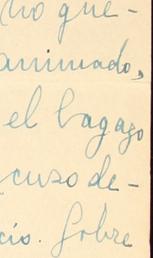 no que-
animado,
el bagage
cuzo de-
cio. Sobre